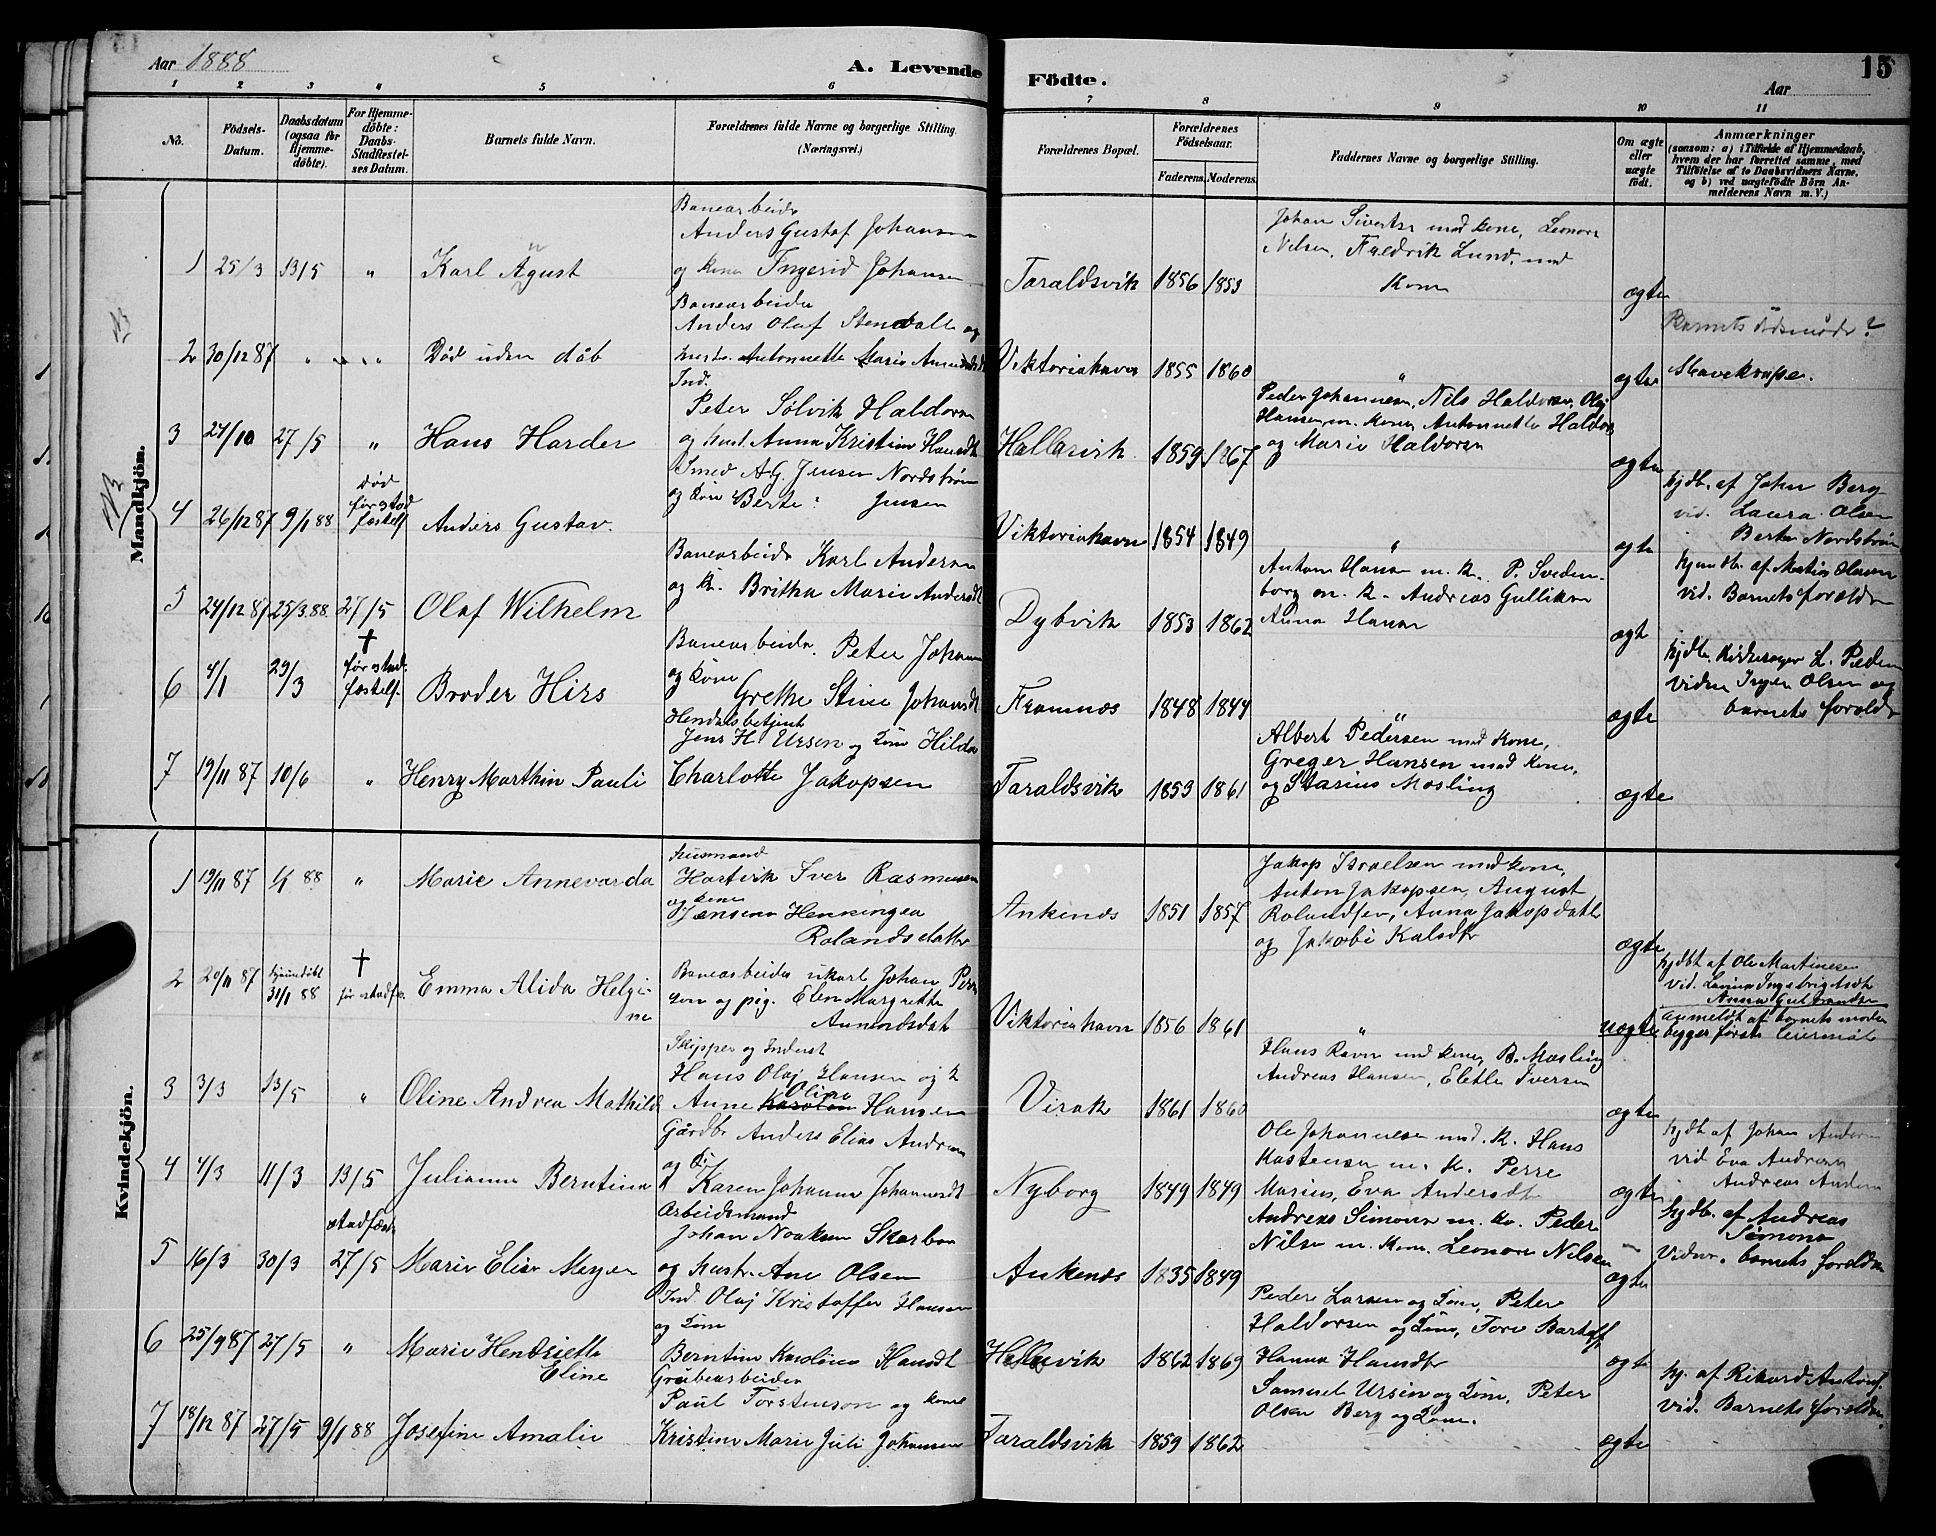 Aar 1888
A. Levende Fødte.
15
Aar
1 2 3 4 5 6 7 8 9 10 11
No.
Födsels-Datum.
Daabsdatum (ogsaa for Hjemme-döbte).
For Hjemme-döbte: Daabs-Stadfæstel-ses Datum.
Barnets fulde Navn.
Forældrenes fulde Navne og borgerlige Stilling. (Næringsvei.)
Forældrenes Bopæl.
Forældrenes Födselsaar.
Faderens. Moderens.
Faddernes Navne og borgerlige Stilling.
Om ægte eller uægte födt.
Anmærkninger
(saasom: a) i Tilfælde af Hjemmedaab, hvem der har forrettet samme, med Tilföielse af to Daabsvidners Navne, og b) ved uægtefödte Börn An-melderens Navn m. V.)
Mandkjön.
1 25/3 13/5 " Karl Agust
Banearbeider
Anders Gustaf Johansen
og kone Ingerid Johansen
Taraldsvik 1856 1853
Johan Sivertsen med kone, Leonore
Nilsen, Fredrik Lund, med
Kone
ægte
2 30/12 87 " " " Död uden dåb
Banearbeider
Anders Olaf Stendalh og
hustr. Antonette Marie
Viktoriahavn 1855 1860
"
ægte
Barnets
3 24/10 27/5 " Hans Harder
Ind.
Peter Sølvik Haldorsen
og hust. Anna Kristine Hansdt
Hallarvik 1859 1867
Peder Johannesen, Nils Haldorsen, Olaj
Hansen m. Kone, Antonnette Haldors
og Marie Haldorsen
ægte
4 26/12 87 9/1 88 död før stad fæstels Anders Gustav.
Smed A G Jensen Nordstrøm
og kone Berte Jensen
Viktoriahavn 1854 1849
"
ægte
hjdb. af John Berg
vid. Laura Olsen
Berte Nordstrøm
5 24/12 87 25/3 88 27/5 Olaf Wilhelm
Banearbeider Karl Andersen
og k. Britha Marie Andersdt
Dybvik 1853 1862
Anton Hansen m. k. P. Sveden-
borg m. k. Andreas Gulliksen
Anna Hansen
ægte
hjemdb. af Martin Olsen
vid. Barnets forældre
6 4/1 29/3 † før stad. fæstels. Broder Hirs
Banearbeider Peter Johansen
og kone
Grethe Stine Johansdt
Framnæs 1848 1844
"
ægte
hjdb. Kirkesanger L. Pedersen
Vidner Inger Olsen og
barnets forældre
7 19/11 87 10/6 " Henry Marthin Pauli
Handelsbetjent
Jens H. Ursen og kone Hilda
Charlotte Jakopsen
Taraldsvik 1853 1861
Albert Pedersen med kone,
Greger Hansen med kone,
og Starius Mosling
ægte
Kvindekjön.
1 19/11 87 4/1 88 " Marie Annevarda
Husmand
Hartvik Iver Rasmussen
og kone
Jensine Henningea
Rolandsdatter
Ankenæs 1851 1857
Jakop Israelsen med kone,
Anton Jakopsen, August
Rolandsen, Anna Jakopsdatter
og Jakobe Kalsdtr
ægte
2 20/11 87 hjemdöbt 31/1 88 † før stadfæ. Emma Alida Helgi-
ne
Banearbeider ukarl Johan Peter
sen og pig. Elen Margrethe
Amundsdat
Viktoriahavn 1856 1861
"
uægte
hjdbt af Ole Martinesen
vid. Lavina Ingebrigtsdt
Anna Gulbrandsen
anmeldt af barnets moder
begges første leiermål
3 3/3 13/5 " Oline Andrea Mathilde
Skipper og Inderst
Hans Olaj Hansen og k
Anne Oline Hansen
Virak 1861 1860
Hans Ravn med kone, B. Mosling
Andreas Hansen, Eletle Iversen
ægte
4 4/3 11/3 13/5 Julianna Berntine
Gårdbr Anders Elias Andersen
og k Karen Johanna Johannesdt
Nyborg 1849 1849
Ole Johannesen med. k. Hans
Kastensen m. k. Perre
Marius, Eva Andersdtr
ægte
hjdbt af Johan Andersen
vid Eva Andersen
Andreas Andersen
5 16/3 30/3 stadfæst. 27/5 Marie Elise Meyer
Arbeidsmand
Johan Noaksen Skarbou
og hustr. Ane Olsen
Ankenæs 1835 1849
Andreas Simonsen m. ko. Peder
Nilsen m. kone. Leonore Nilsen
ægte
hjdb. af Andreas
Simonsen
Vidner. barnets forældre
6 25/9 87 27/5 " Marie Hendriette
Eline
Ind. Olaj Kristoffer Hansen
og kone
Berntine Karoline Hansdt
Hallarvik 1862 1869
Peder Larsen og kone, Peter
Haldorsen og kone, Tore
Hanna Hansdtr
ægte
7 18/12 87 27/5 9/1 88 Josefine Amalie
Grubearbeider
Paul Torstenson og kone
Kristine Marie Juli Johansen
Taraldsvik 1859 1862
Samuel Ursin og kone, Peter
Olsen Berg og kone.
ægte
hj. af Rikard Antonsen
vid. Barnets forældre